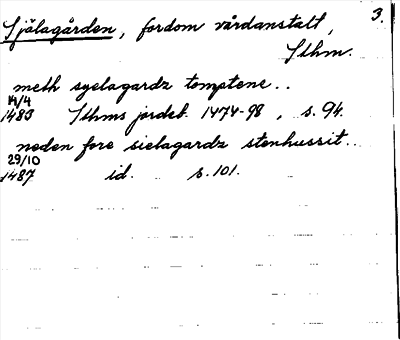 3.
Själagården, fordom vårdanstalt,
Sthm.
meth syelagardz tomptene..
14/4
1483 Sthms jordeb. 1474-98, s. 94.
neden fore sielagardz stenhussit..
29/10
1487 id. s. 101.